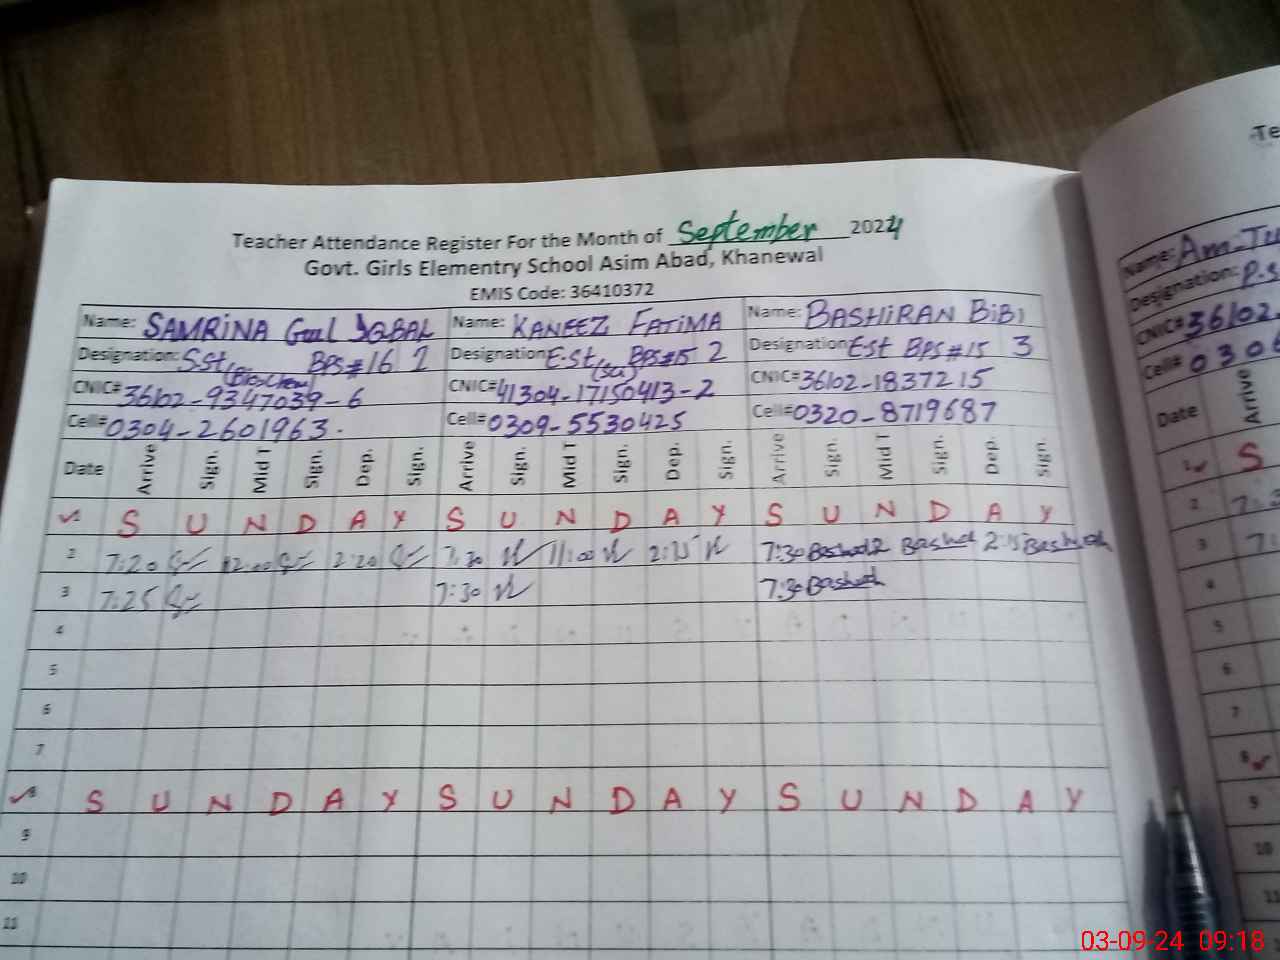 Teacher Attendance Register For the Month of September 2024
Govt. Girls Elementry School Asim Abad, Khanewal
EMIS Code: 36410372
Name: SAMRINA Gul IQBAL Name: KANEEZ FATIMA Name: BASHIRAN BiBi
Designation: SSt (Bio,Chem) BPS#16 1 Designation ESt (Sci) BPS#15 2 Designation Est BPS#15 3
CNIC# 36102-9347039-6 CNIC# 41304-17150413-2 CNIC# 36102-1837215
Cell# 0304-2601963. Cell# 0309-5530425 Cell# 0320-8719687
Date Arrive Sign. Mid T Sign. Dep. Sign. Arrive Sign. Mid T Sign. Dep. Sign. Arrive Sign. Mid T Sign. Dep. Sign.
1 S U N D A Y S U N D A Y S U N D A Y
2 7:20 12:00 2:20 7:30 11:00 2:15 7:30 2:15
3 7:25 7:30 7:30
4
5
6
7
8 S U N D A Y S U N D A Y S U N D A Y
9
10
11
Te
Name: Am-Tu
Designation: P.S
CNIC# 36102
Cell# 0306
Date Arrive
1 S
2
3
4
5
6
7
8
9
10
11
03-09-24 09:18